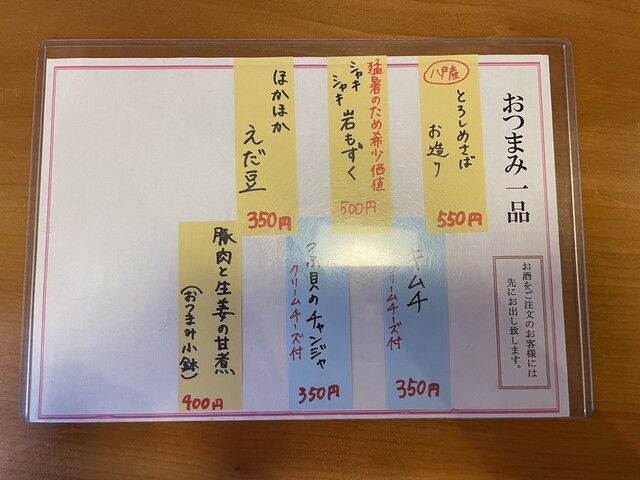 おつまみ一品
お酒をご注文のお客様には
先にお出し致します。
八戸産
とろしめさば
お造り
550円
猛暑のため希少価値
シャキ
シャキ
岩もずく
500円
ほかほか
えだ豆
350円
キムチ
クリームチーズ付
350円
つぶ貝のチャンジャ
クリームチーズ付
350円
豚肉と生姜の甘煮
(おつまみ小鉢)
400円